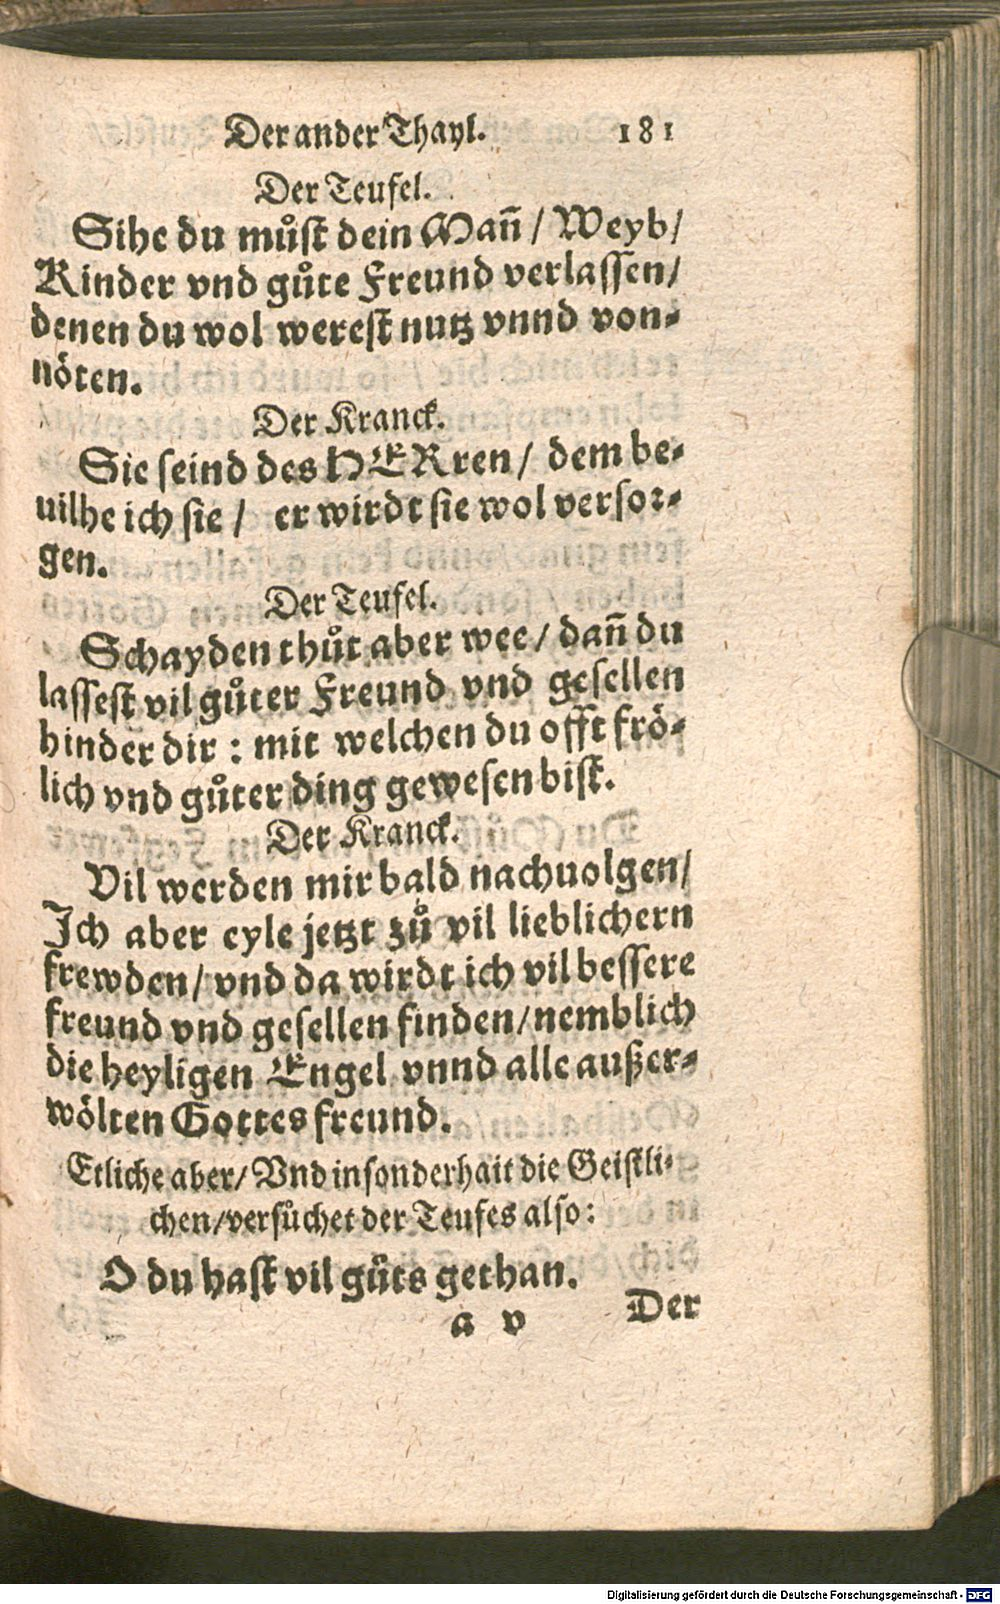 Der ander Thayl. 181
Der Teufel.
Sihe du můſt dein Mañ / Weyb /
Kinder vnd gůte Freund verlaſſen /
denen du wol wereſt nutz vnnd von⸗
nöten.
Der Kranck.
Sie ſeind des HERren / dem be⸗
uilhe ich ſie / er wirdt ſie wol verſor⸗
gen.
Der Teufel.
Schayden thůt aber wee / dañ du
laſſeſt vil gůter Freund vnd geſellen
hinder dir : mit welchen du offt frö⸗
lich vnd gůter ding geweſen biſt.
Der Kranck.
Vil werden mir bald nachuolgen /
Ich aber eyle jetzt zů vil lieblichern
frewden / vnd da wirdt ich vil beſſere
freund vnd geſellen finden / nemblich
die heyligen Engel vnnd alle außer⸗
wölten Gottes freund.
Etliche aber / Vnd inſonderhait die Geiſtli⸗
chen / verſůchet der Teufes alſo :
O du haſt vil gůts gethan.
a v Der
Digitalisierung gefördert durch die Deutsche Forschungsgemeinschaft - DFG